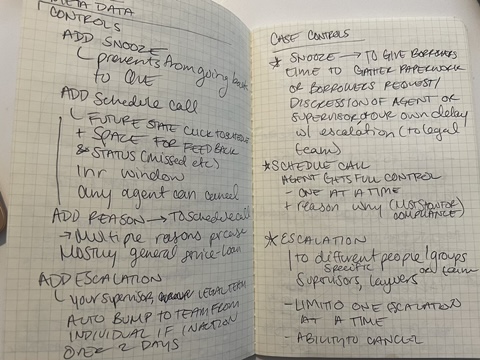 META DATA
CONTROLS
ADD SNOOZE
prevents from going back
to QUE
ADD Schedule call
FUTURE STATE CLICK TO SCHEDULE
+ SPACE FOR FEEDBACK
& STATUS (missed etc)
1hr window
any agent can cancel
ADD REASON → TO Schedule call
→ Multiple reasons per case
Mostly general service-loan
ADD ESCALATION
your supervisor, LEGAL TEAM
AUTO BUMP TO TEAM FROM
INDIVIDUAL IF INACTION
OVER 2 DAYS
CASE CONTROLS
* SNOOZE → TO GIVE BORROWERS
TIME TO GATHER PAPERWORK
OR BORROWERS REQUEST/
DISCRESSION OF AGENT OR
SUPERVISOR, + OUR OWN DELAY
w/ escalation (to legal
team)
* SCHEDULE CALL
AGENT GETS FULL CONTROL
- ONE AT A TIME
+ reason why (
COMPLIANCE)
* ESCALATION
to different people/groups
Specific team
Supervisors, lawyers
- LIMIT TO ONE ESCALATION
AT A TIME
- ABILITY TO CANCEL